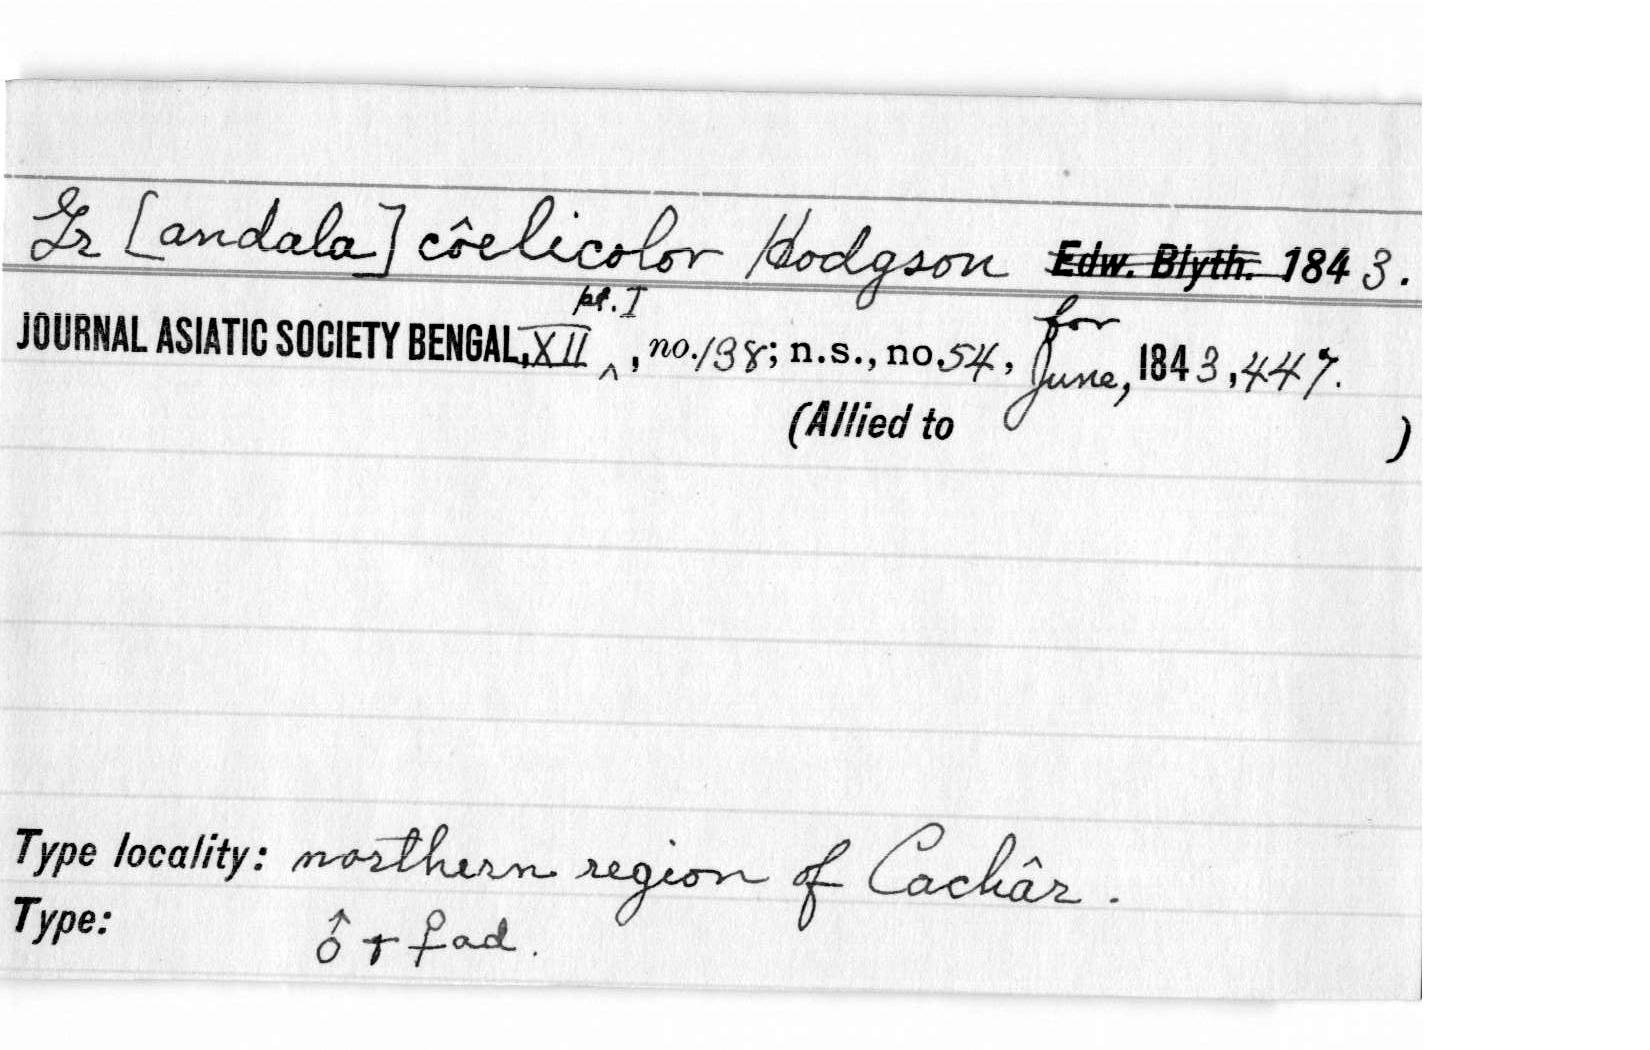 Gr [andala] côelicolor Hodgson Edw. Blyth. 1843.
pt. I for
JOURNAL ASIATIC SOCIETY BENGAL, XII ^, no. 138; n.s., no. 54, June, 1843, 447.
(Allied to )
Type locality: northern region of Cachâr.
Type: ♂ + ♀ ad.